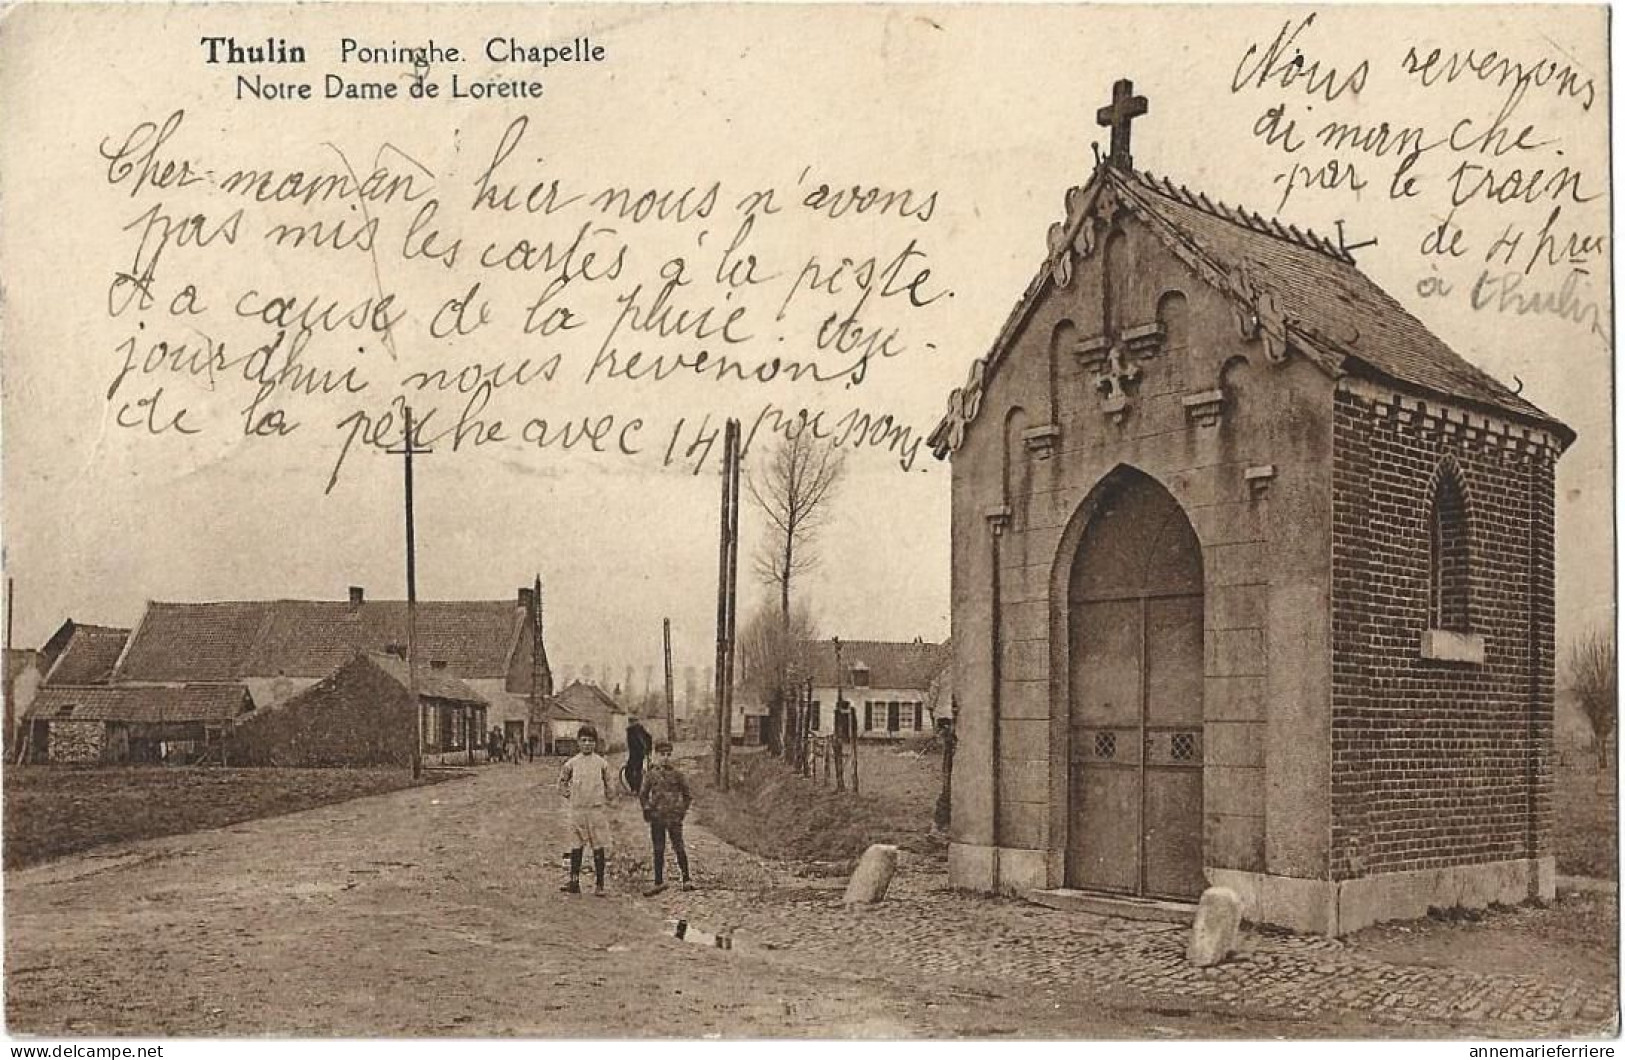 Thulin Poninghe. Chapelle
Notre Dame de Lorette
Cher maman hier nous n'avons
pas mis les cartes à la piste.
et a cause de la pluie. Au-
jourdhui nous revenons
de la pêche avec 14 poissons.
Nous revenons
dimanche.
par le train
de 4 hrs
à thulin
delcampe.net
annemarieferriere